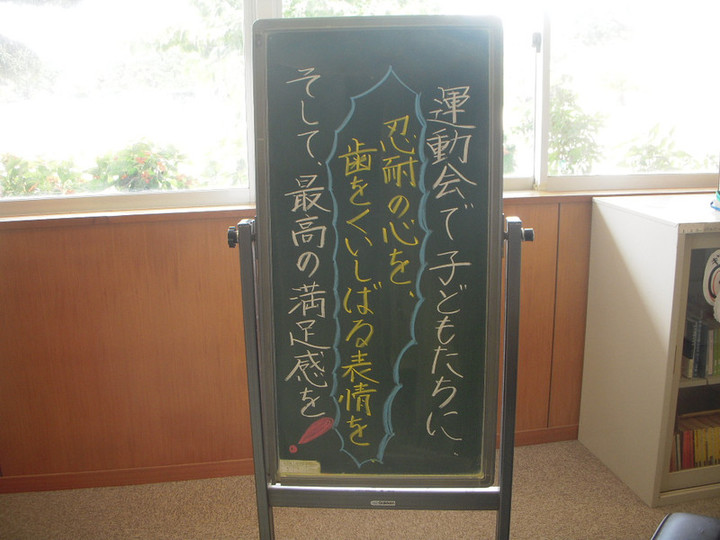 運動会で子どもたちに、
忍耐の心を、
歯をくいしばる表情を
そして、最高の満足感を!